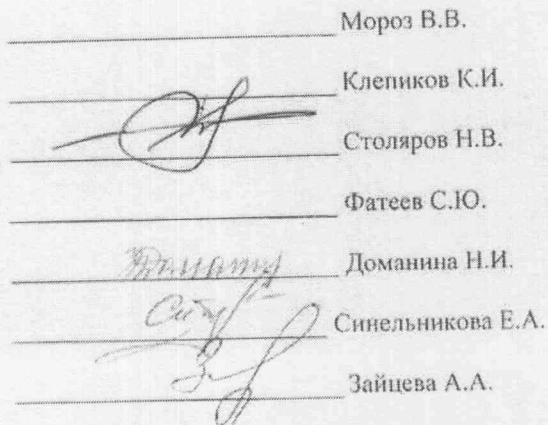 Мороз В.В.
Клепиков К.И.
Столяров Н.В.
Фатеев С.Ю.
Доманина Н.И.
Синельникова Е.А.
Зайцева А.А.